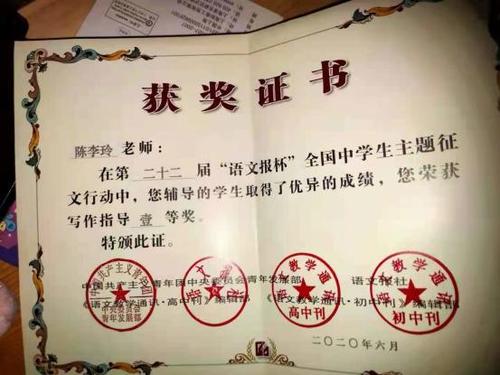 获奖证书
陈李玲 老师：
在第 二十二 届“语文报杯”全国中学生主题征
文行动中，您辅导的学生取得了优异的成绩，您荣获
写作指导 壹 等奖。
特颁此证。
中国共产主义青年团中央委员会青年发展部 语文报社
《语文教学通讯·高中刊》编辑部 《语文教学通讯·初中刊》编辑部
中央委员会
青年发展部
高中刊
初中刊
二〇二〇年六月